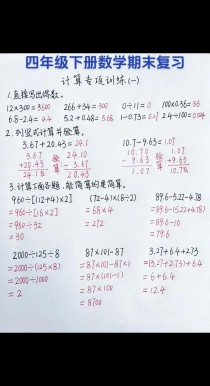 四年级下册数学期末复习
计算专项训练(一)
1.直接写出得数。
12×300=3600 266+34=300 0÷11=0 100×0.36=36
6.8-2.4=0.4 5.2+0.48=5.68 1-0.73=0.27 2.4÷100=0.024
2.列竖式计算并验算。
3.67+20.43=24.1 10.7-9.63=1.07
3.67 验 24.10 10.70 验 1.07
+20.43 算 -3.67 -9.63 算 +9.63
24.10 20.43 1.07 10.70
3.计算下面各题,能简算的要简算。
960÷[(12+4)×2] (72-4)×(8÷2) 89.6-5.22-4.78
=960÷[16×2] =68×4 =89.6-(5.22+4.78)
=960÷32 =272 =89.6-10
=30 =79.6
2000÷125÷8 87×101-87 3.27+6.4+2.73
=2000÷(125×8) =87×101-87×1 =(3.27+2.73)+6.4
=2000÷1000 =87×(101-1) =6+6.4
=2 =87×100 =12.4
=8700